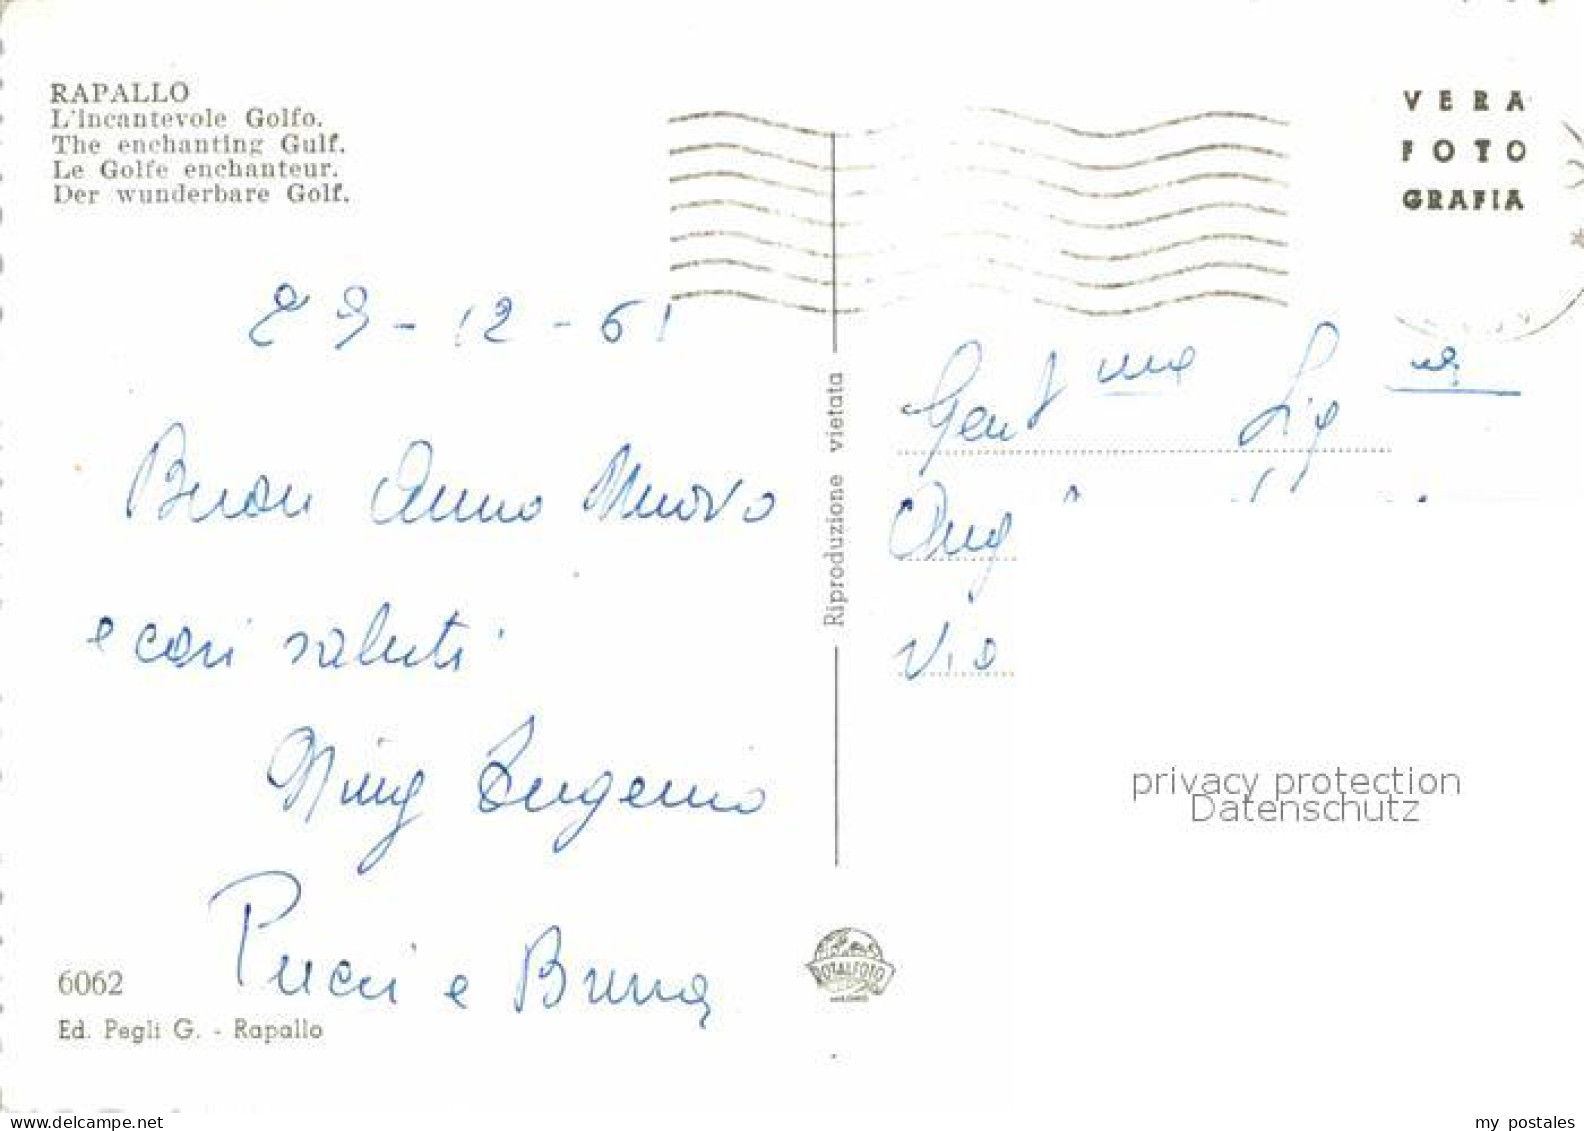 RAPALLO
L'incantevole Golfo.
The enchanting Gulf.
Le Golfe enchanteur.
Der wunderbare Golf.
VERA
FOTO
GRAFIA
29-12-61
Buon Anno Nuovo
e cari saluti
Eugenio
Pucci e Bruna
6062
Ed. Pegli G. - Rapallo
Riproduzione vietata
ROTALFOTO
MILANO
Gent ma Sig ra
Via
privacy protection
Datenschutz
delcampe.net
my postales